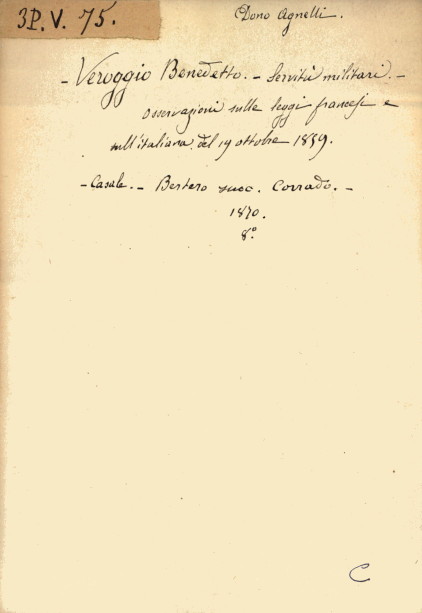 3P. V. 75.
Dono Agnelli.
- Veroggio Benedetto. - Servitù militari. -
osservazioni sulle leggi francesi e
sull'italiana del 19 ottobre 1859.
- Casale. - Bertero succ. Corrado. -
1870.
8.°
C